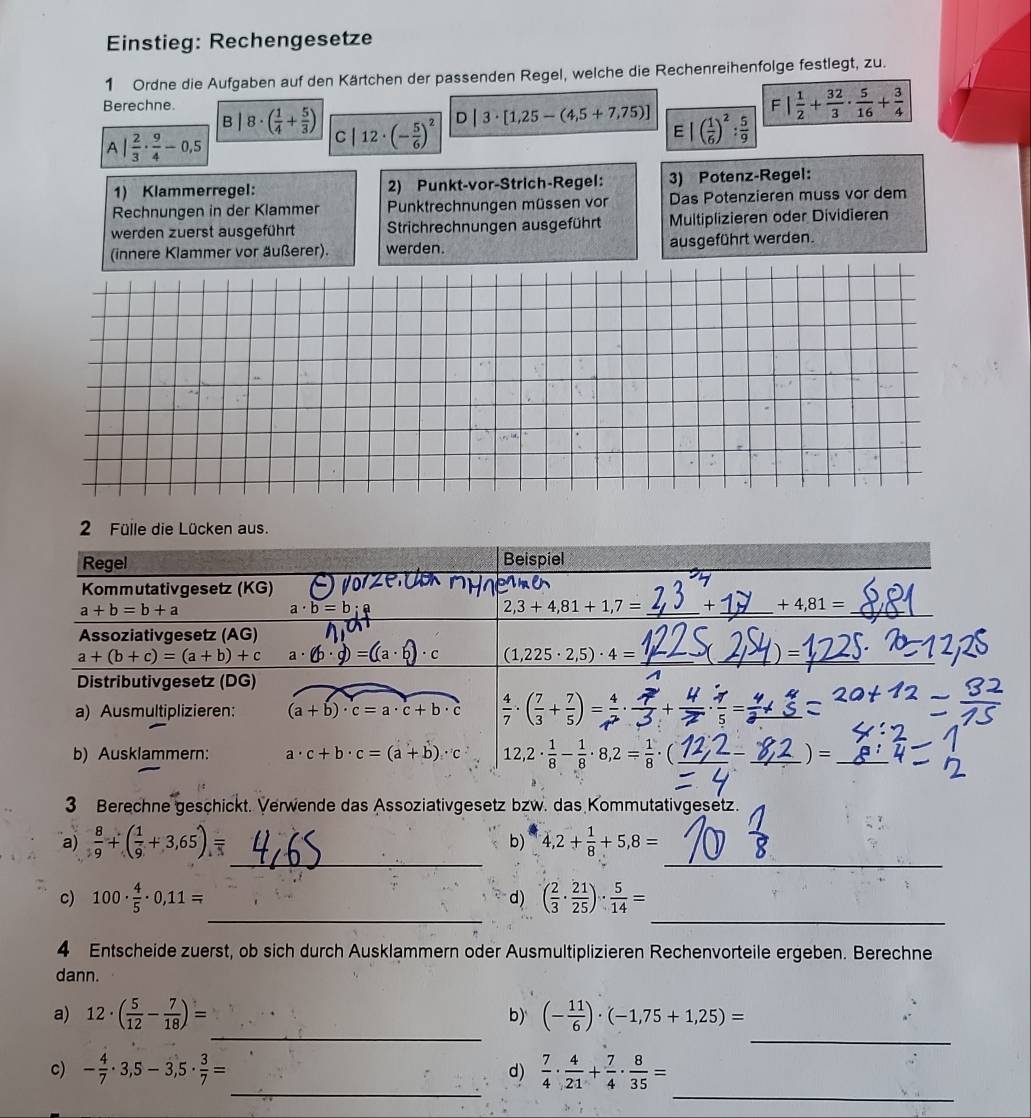 Einstieg: Rechengesetze
1 Ordne die Aufgaben auf den Kärtchen der passenden Regel, welche die Rechenreihenfolge festlegt, zu.
Berechne.
A | 2/3 · 9/4 − 0,5
B | 8 · (1/4 + 5/3)
C | 12 · (−5/6)²
D | 3 · [1,25 − (4,5 + 7,75)]
E | (1/6)² : 5/9
F | 1/2 + 32/3 · 5/16 + 3/4
1) Klammerregel:
Rechnungen in der Klammer
werden zuerst ausgeführt
(innere Klammer vor äußerer).
2) Punkt-vor-Strich-Regel:
Punktrechnungen müssen vor
Strichrechnungen ausgeführt
werden.
3) Potenz-Regel:
Das Potenzieren muss vor dem
Multiplizieren oder Dividieren
ausgeführt werden.
2 Fülle die Lücken aus.
Regel Beispiel
Kommutativgesetz (KG)
a + b = b + a a · b = b · a 2,3 + 4,81 + 1,7 = 2,3 + 1,7 + 4,81 = 8,81
Assoziativgesetz (AG)
a + (b + c) = (a + b) + c a · (b · c) = (a · b) · c (1,225 · 2,5) · 4 = 1,225 ( 2,5 4 ) = 1,225 · 10 = 12,25
Distributivgesetz (DG)
a) Ausmultiplizieren: (a + b) · c = a · c + b · c 4/7 · (7/3 + 7/5) = 4/7 · 7/3 + 4/7 · 7/5 = 4/3 + 4/5 = 20 + 12 = 32/15
b) Ausklammern: a · c + b · c = (a + b) · c 12,2 · 1/8 − 1/8 · 8,2 = 1/8 · ( 12,2 − 8,2 ) = 4 : 2 / 8 : 4 = 1/2
= 4
3 Berechne geschickt. Verwende das Assoziativgesetz bzw. das Kommutativgesetz.
a) 8/9 + (1/9 + 3,65) = 4,65
b) 4,2 + 1/8 + 5,8 = 10 1/8
c) 100 · 4/5 · 0,11 =
d) (2/3 · 21/25) · 5/14 =
4 Entscheide zuerst, ob sich durch Ausklammern oder Ausmultiplizieren Rechenvorteile ergeben. Berechne
dann.
a) 12 · (5/12 − 7/18) =
b) (−11/6) · (−1,75 + 1,25) =
c) −4/7 · 3,5 − 3,5 · 3/7 =
d) 7/4 · 4/21 + 7/4 · 8/35 =